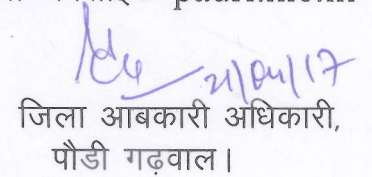 21/04/17
जिला आबकारी अधिकारी,
पौडी गढ़वाल।